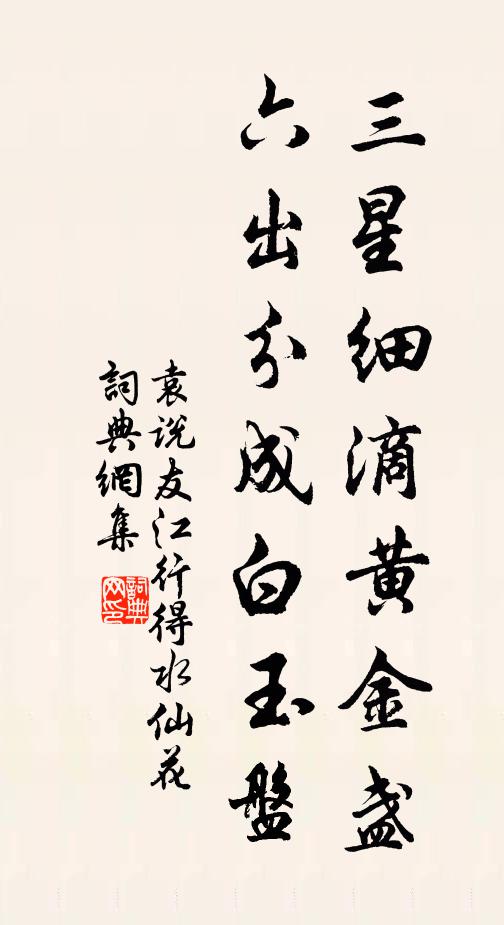 三星细滴黄金盏
六出分成白玉盤
袁说友江行得水仙花
詞典網集
詞典网印